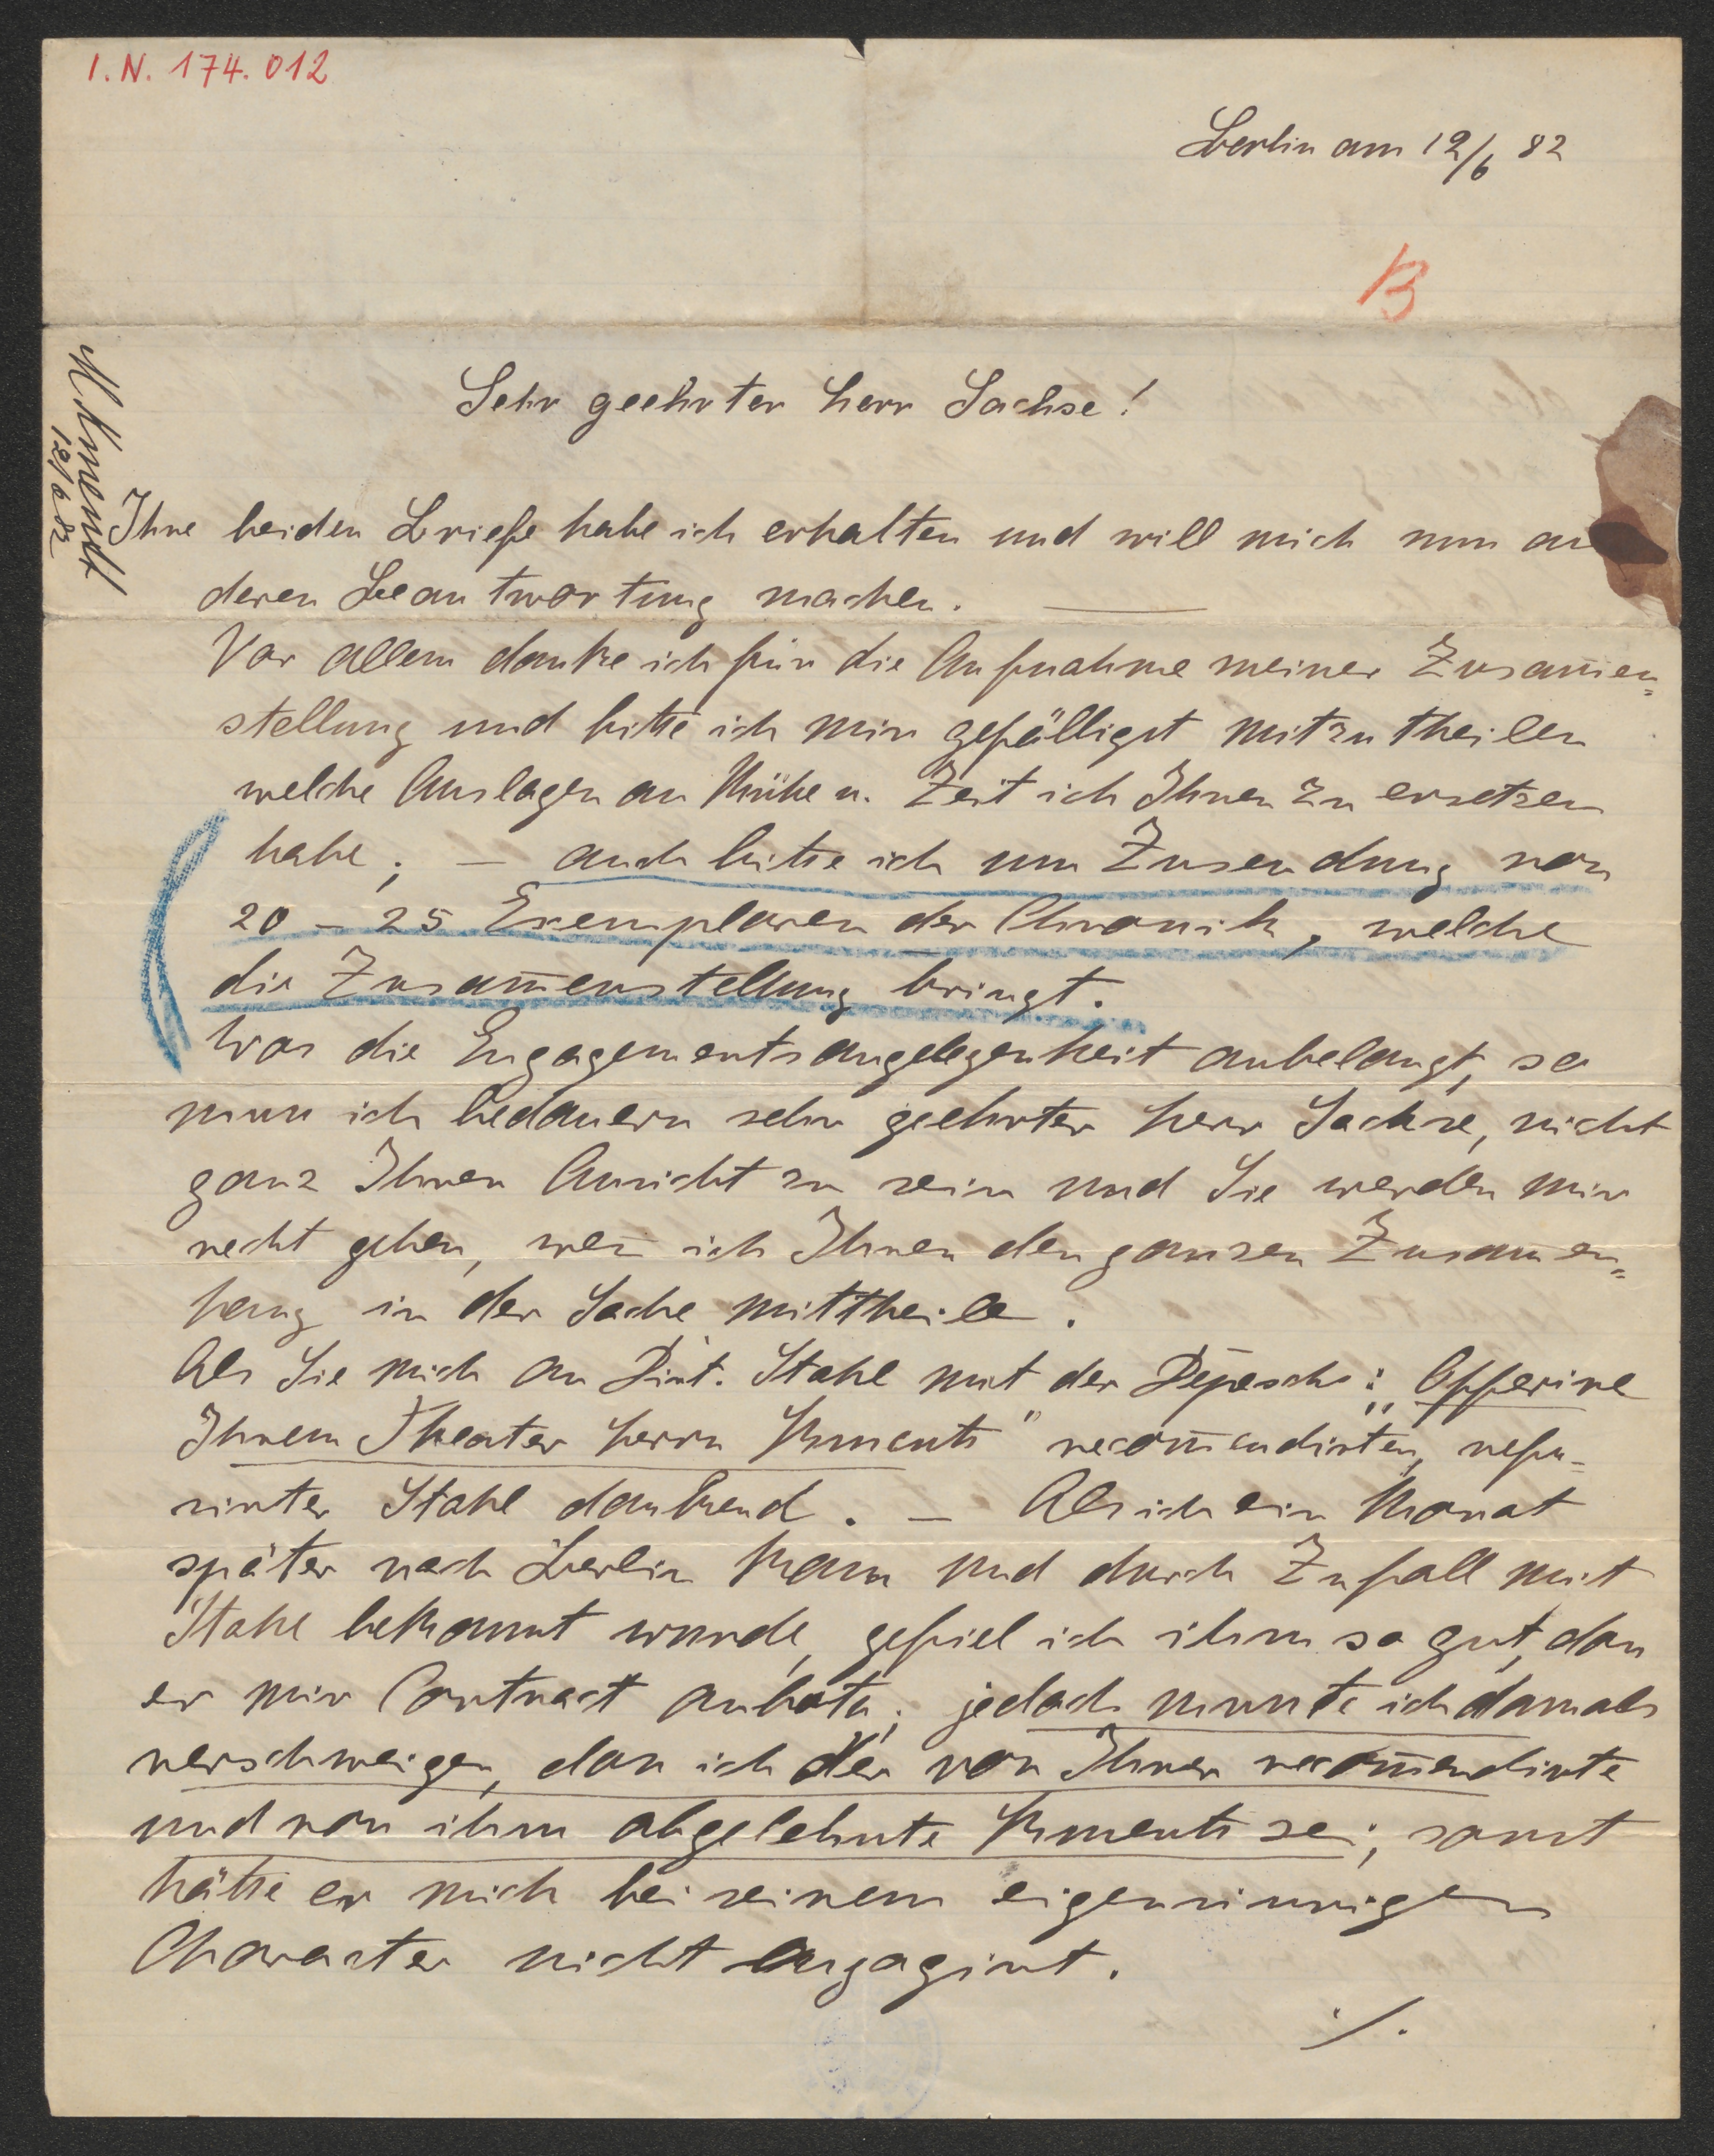 I.N. 174.012
Berlin am 12/6 82
B
M. Kmentt
12/6 82
Sehr geehrter Herr Sachse!
Ihre beiden Briefe habe ich erhalten und will mich nun an
deren Beantwortung machen. —
Vor allem danke ich für die Aufnahme meiner Zusam̄en=
stellung und bitte ich mir gefälligst mitzutheilen
welche Auslagen an Mühe u. Zeit ich Ihnen zu ersetzen
habe; — auch bitte ich um Zusendung von
20 – 25 Exemplaren der Chronik, welche
die Zusam̄enstellung bringt.
Was die Engagementsangelegenheit anbelangt, so
muss ich bedauern sehr geehrter Herr Sachse, nicht
ganz Ihrer Ansicht zu sein und Sie werden mir
recht geben, wen̄ ich Ihnen den ganzen Zusam̄en=
hang in der Sache mittheile.
Als Sie mich an Dirt. Stahl mit der Depesche: „Offerire
Ihrem Theater Herrn Kmentt" recom̄endirten, refü=
sirter Stahl dankend. — Als ich ein Monat
später nach Berlin kam und durch Zufall mit
Stahl bekannt wurde, gefiel ich ihm so gut, dass
er mir Contract anbote; jedoch musste ich damals
verschweigen, dass ich der von Ihnen recom̄endirte
und von ihm abgelehnte Kmentt sei, sonst
hätte er mich bei seinem eigensinnigen
Character nicht engagirt.
./.